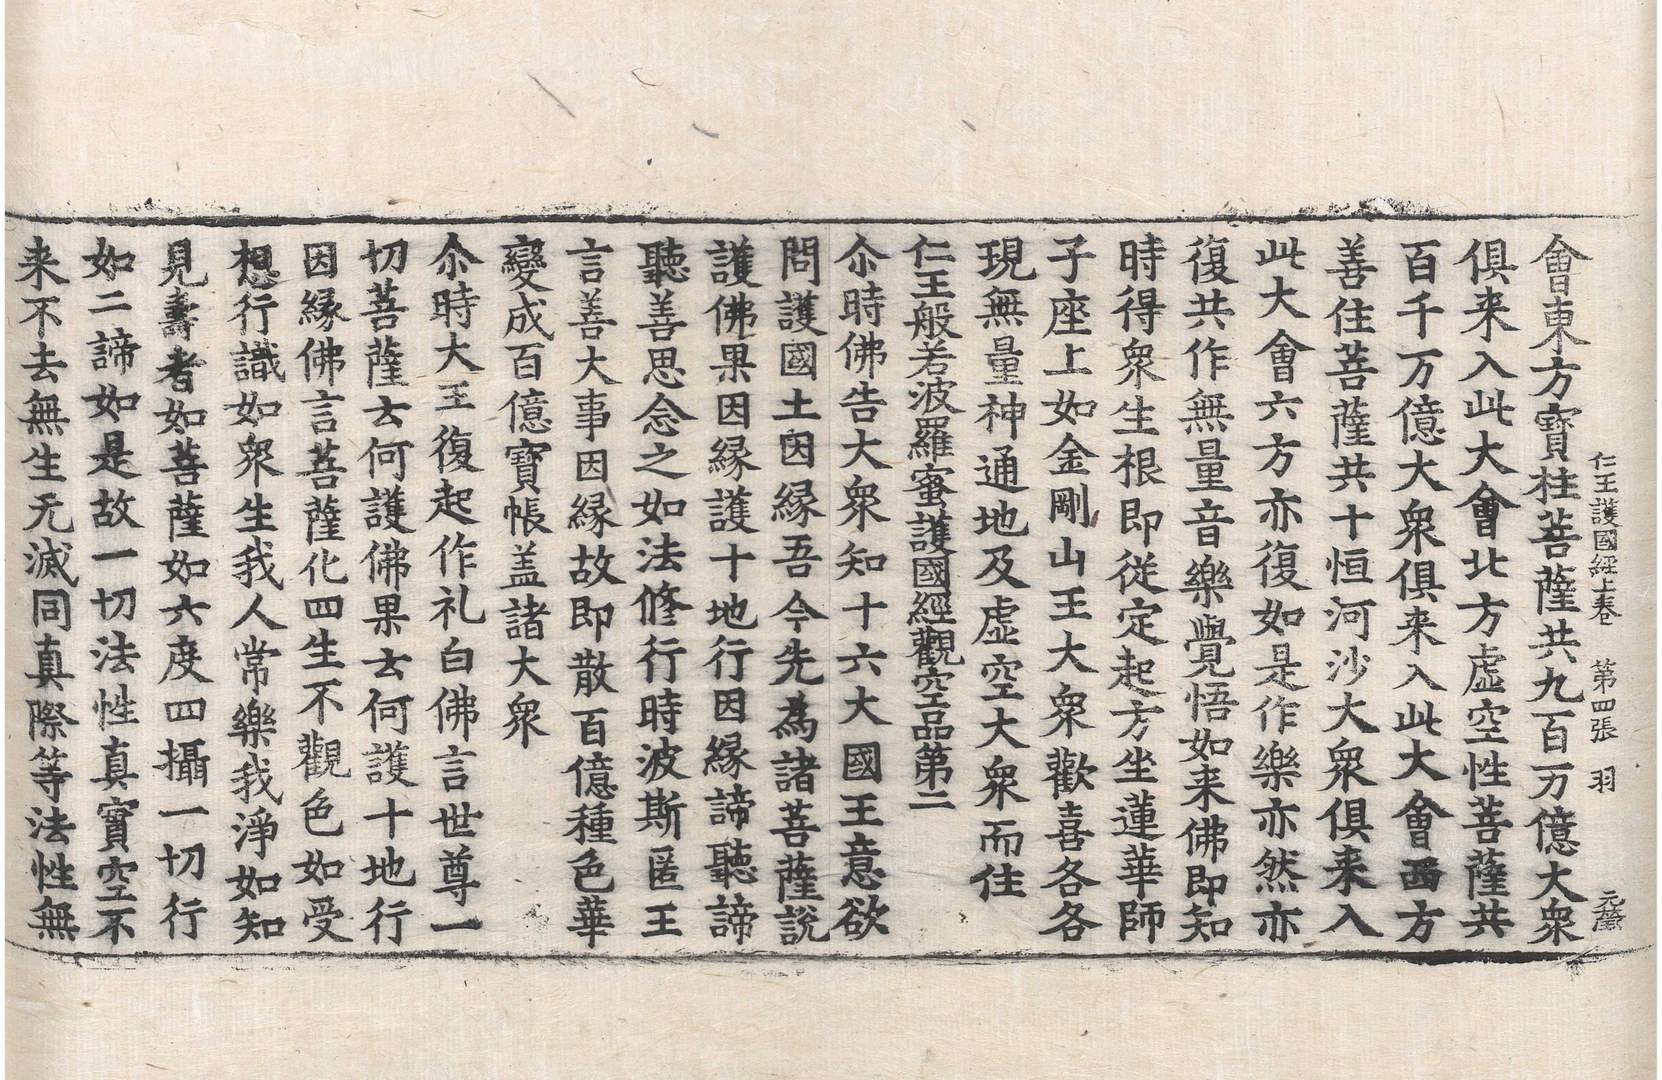 仁王護國經上卷　第四張　羽　元
會東方寶柱菩薩共九百万億大衆
俱来入此大會北方虛空性菩薩共
百千万億大衆俱来入此大會西方
善住菩薩共十恒河沙大衆俱来入
此大會六方亦復如是作樂亦然亦
復共作無量音樂覺悟如来佛即知
時得衆生根即従定起方坐蓮華師
子座上如金剛山王大衆歡喜各各
現無量神通地及虛空大衆而住
仁王般若波羅蜜護國經觀空品第二
尒時佛告大衆知十六大國王意欲
問護國土因緣吾今先為諸菩薩說
護佛果因緣護十地行因緣諦聽諦
聽善思念之如法修行時波斯匿王
言善大事因緣故即散百億種色華
變成百億寶帳盖諸大衆
尒時大王復起作礼白佛言世尊一
切菩薩云何護佛果云何護十地行
因緣佛言菩薩化四生不觀色如受
想行識如衆生我人常樂我淨如知
見壽者如菩薩如六度四攝一切行
如二諦如是故一切法性真實空不
来不去無生无滅同真際等法性無